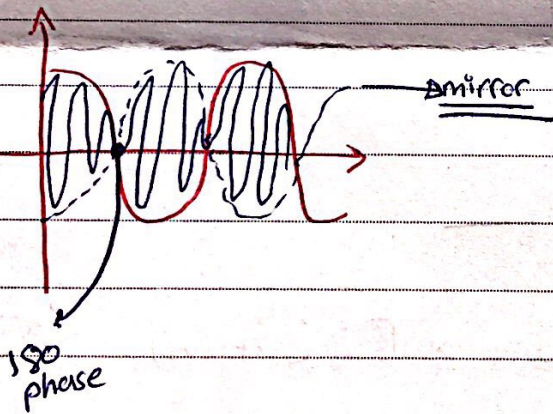 mirror
180
phase